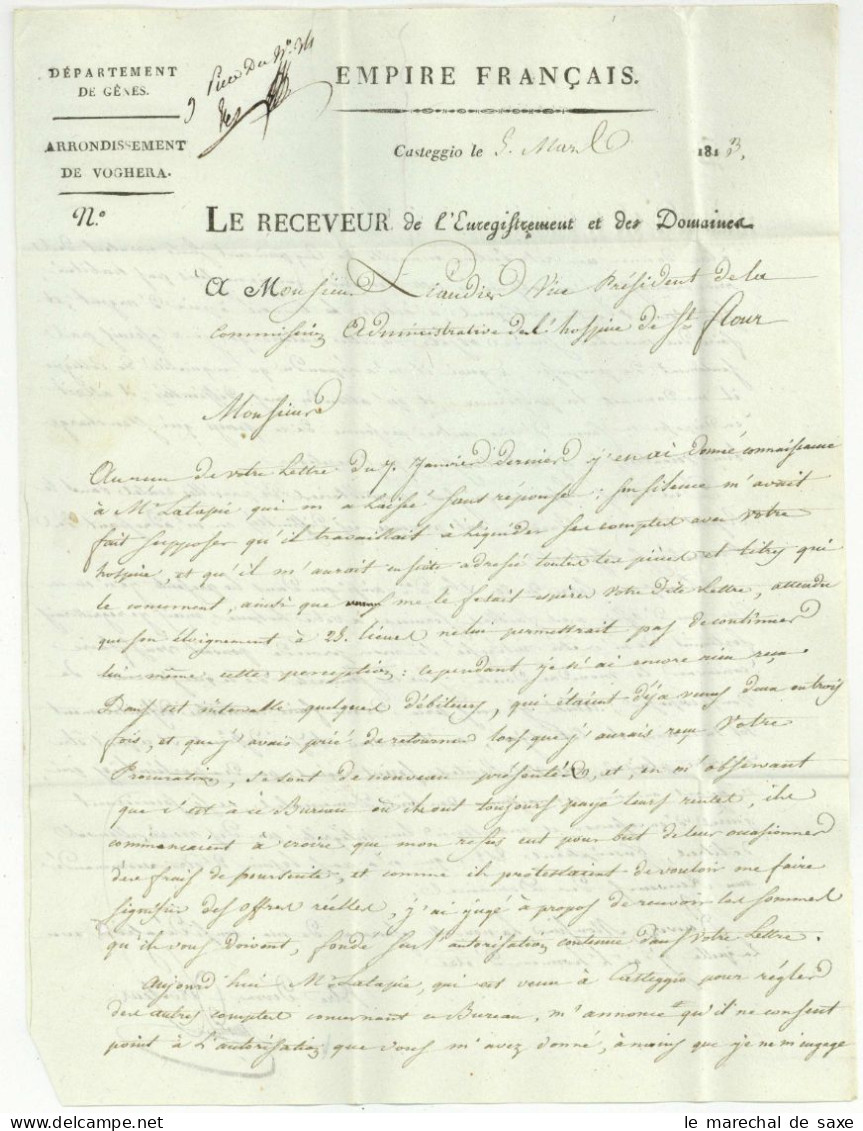 DÉPARTEMENT
DE GÊNES.
ARRONDISSEMENT
DE VOGHERA.
N.o
Piece du N.o 34
EMPIRE FRANÇAIS.
Casteggio le 5. Mars 1813,
LE RECEVEUR de l'Enregistrement et des Domaines
A Monsieur Vice Président de la
Commission Administrative de l'hospice de St flour
Monsieur
Au reçu de votre Lettre du 7. Janvier dernier j'en ai donné connaissance
à Mr Latapie qui m'a laissé sans réponse : son silence m'avait
fait supposer qu'il travaillait à liquider ses comptes avec votre
hospice, et qu'il m'aurait ensuite adressé toutes les pièces et titres qui
le concernent, ainsi que me le fesait espérer votre dite Lettre, attendu
que son éloignement à 25. lieues ne lui permettrait pas de continuer
lui même cette perception : cependant je n'ai encore rien reçu.
Dans cet intervalle quelques débiteurs, qui étaient déja venus deux ou trois
fois, et que j'avais prié de retourner lorsque j'aurais reçu Votre
Procuration, se sont de nouveau présentés, et, en m'observant
que c'est à ce Bureau où ils ont toujours payé leurs rentes, ils
commençaient à croire que mon refus eut pour but de leur occasionner
des frais de poursuite, et comme ils protestaient de vouloir me faire
signifier des offres réelles, j'ai jugé à propos de recevoir les sommes
qu'ils vous doivent, fondé sur l'autorisation contenue dans Votre Lettre.
Aujourd'hui Mr Latapie, qui est venu à Casteggio pour régler
des autres comptes concernant ce Bureau, m'annonce qu'il ne consent
point à l'autorisation que vous m'avez donné, à moins que je ne m'engage
le marechal de saxe